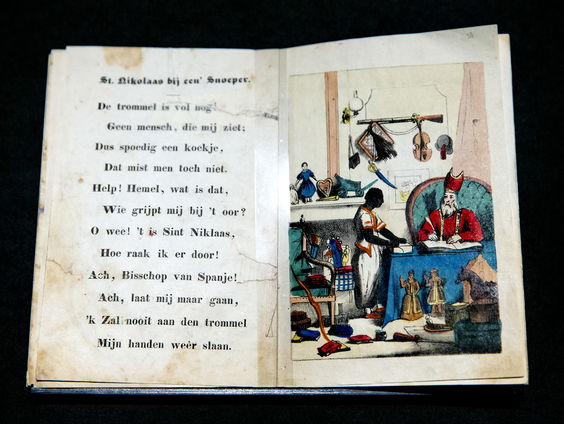 St. Nikolaas bij een' Snoeper.
De trommel is vol nog!
Geen mensch, die mij ziet;
Dus spoedig een koekje,
Dat mist men toch niet.
Help! Hemel, wat is dat,
Wie grijpt mij bij 't oor?
O wee! 't is Sint Niklaas,
Hoe raak ik er door!
Ach, Bisschop van Spanje!
Ach, laat mij maar gaan,
'k Zal nooit aan den trommel
Mijn handen weêr slaan.